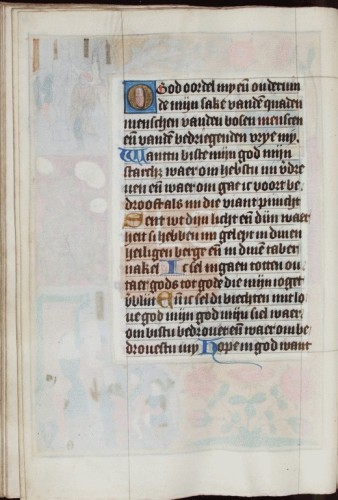 O God oordel my en̄ ondersin
de mijn sake vandē quaden
menschen vanden bosen mensen
en̄ vandē bedriegenden vrye my.
Wantu biste mijn god mijn
starcħ waer om hebstu my v̄dre
uen en̄ waer om gae ic voort be
droeft als mi die viant pinicht
Sent wt dijn licht en̄ dijn waer
heit si hebben mi geleyt in dinen
heiligen berge en̄ in dinē taber
nakel Ic sel ingaen totten ou
taer gods tot gode die mijn ioget
v̄blijt En̄ ic sel di biechten mit lo
ue god mijn god mijn siel waer
om bistu bedrouet en̄ waer om be
drouestu my Hope in god want